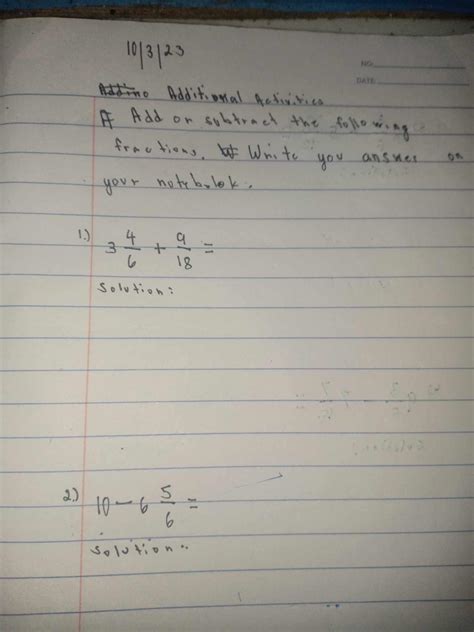 10/3/23
NO.
DATE
Adding Additional Activities
A Add or subtract the following
fractions. Write you answer on
your notebook.
1.) 3 4/6 + 9/18 =
Solution:
2.) 10 - 6 5/6 =
Solution: